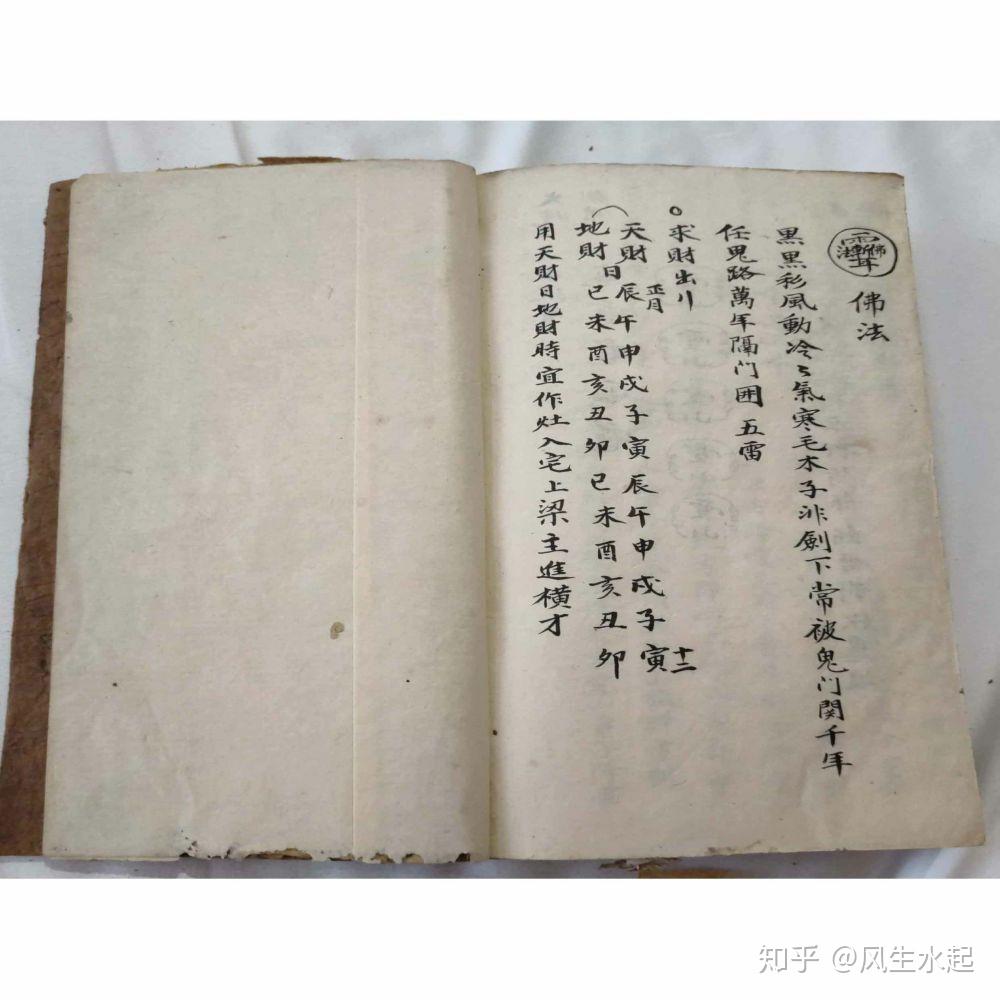 佛法
黒黒彩風動冷々氣寒毛木子洲劍下常被鬼门関千年
任鬼路萬年隔门囲 五雷
求財出行
正月
天財日辰午申戌子寅辰午申戌子寅
十二
地財 巳未酉亥丑卯巳未酉亥丑卯
用天財日地財時宜作灶入宅上梁主進横才
知乎 @风生水起